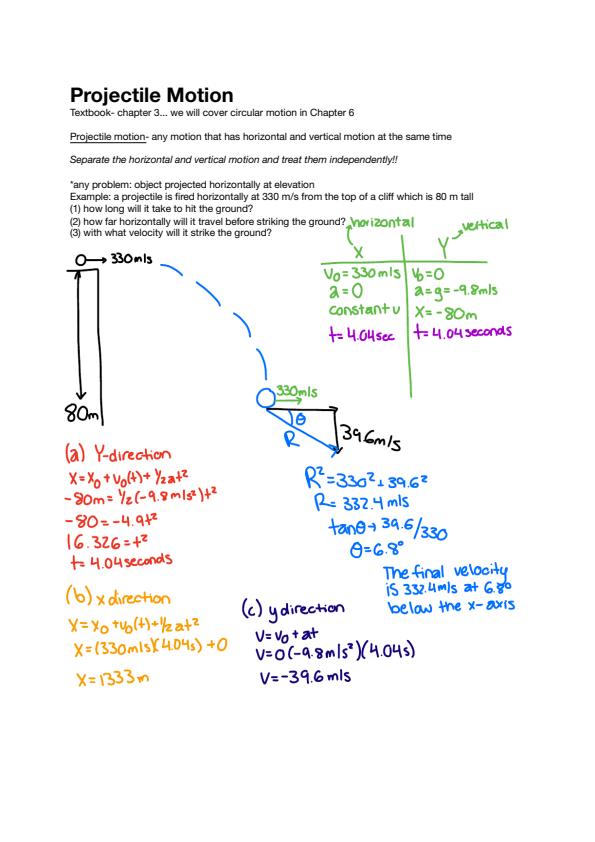 Projectile Motion
Textbook- chapter 3... we will cover circular motion in Chapter 6
Projectile motion- any motion that has horizontal and vertical motion at the same time
Separate the horizontal and vertical motion and treat them independently!!
*any problem: object projected horizontally at elevation
Example: a projectile is fired horizontally at 330 m/s from the top of a cliff which is 80 m tall
(1) how long will it take to hit the ground?
(2) how far horizontally will it travel before striking the ground?
(3) with what velocity will it strike the ground?
horizontal
vertical
X
Y
V₀=330m/s
a=0
constant v
t=4.04sec
V₀=0
a=g=-9.8m/s
X=-80m
t=4.04seconds
330m/s
80m
330m/s
θ
R
39.6m/s
(a) Y-direction
X=X₀+V₀(t)+½at²
-80m=½(-9.8m/s²)t²
-80=-4.9t²
16.326=t²
t=4.04seconds
R²=330²+39.6²
R=332.4m/s
tanθ→39.6/330
θ=6.8°
The final velocity
is 332.4m/s at 6.8°
below the x-axis
(b) x direction
X=X₀+V₀(t)+½at²
X=(330m/s)(4.04s)+0
X=1333m
(c) y direction
V=V₀+at
V=0(-9.8m/s²)(4.04s)
V=-39.6m/s